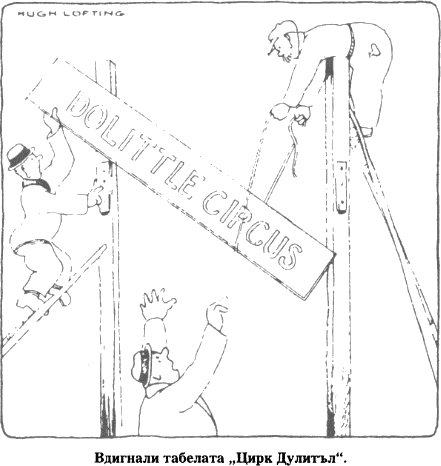 HUGH LOFTING
DOLITTLE CIRCUS
Вдигнали табелата „Цирк Дулитъл“.